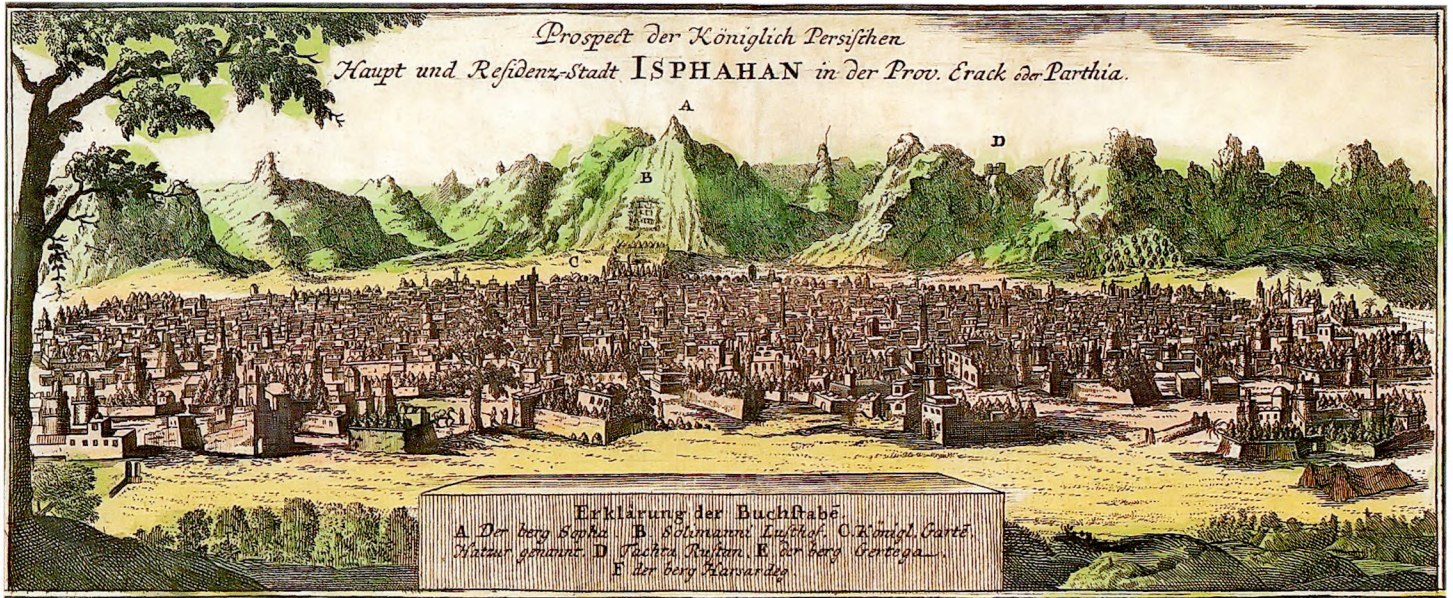 Prospect der Königlich Persischen
Haupt und Residenz-Stadt ISPHAHAN in der Prov. Erack oder Parthia.
A
D
B
C
Erklärung der Buchstabē.
A Der berg Sopha B Solimanni Lusthof. C. Königl. Gartē,
Hatzur genannt. D Tachtu Rustan. E der berg Gertega.
F der berg Harsardeg.